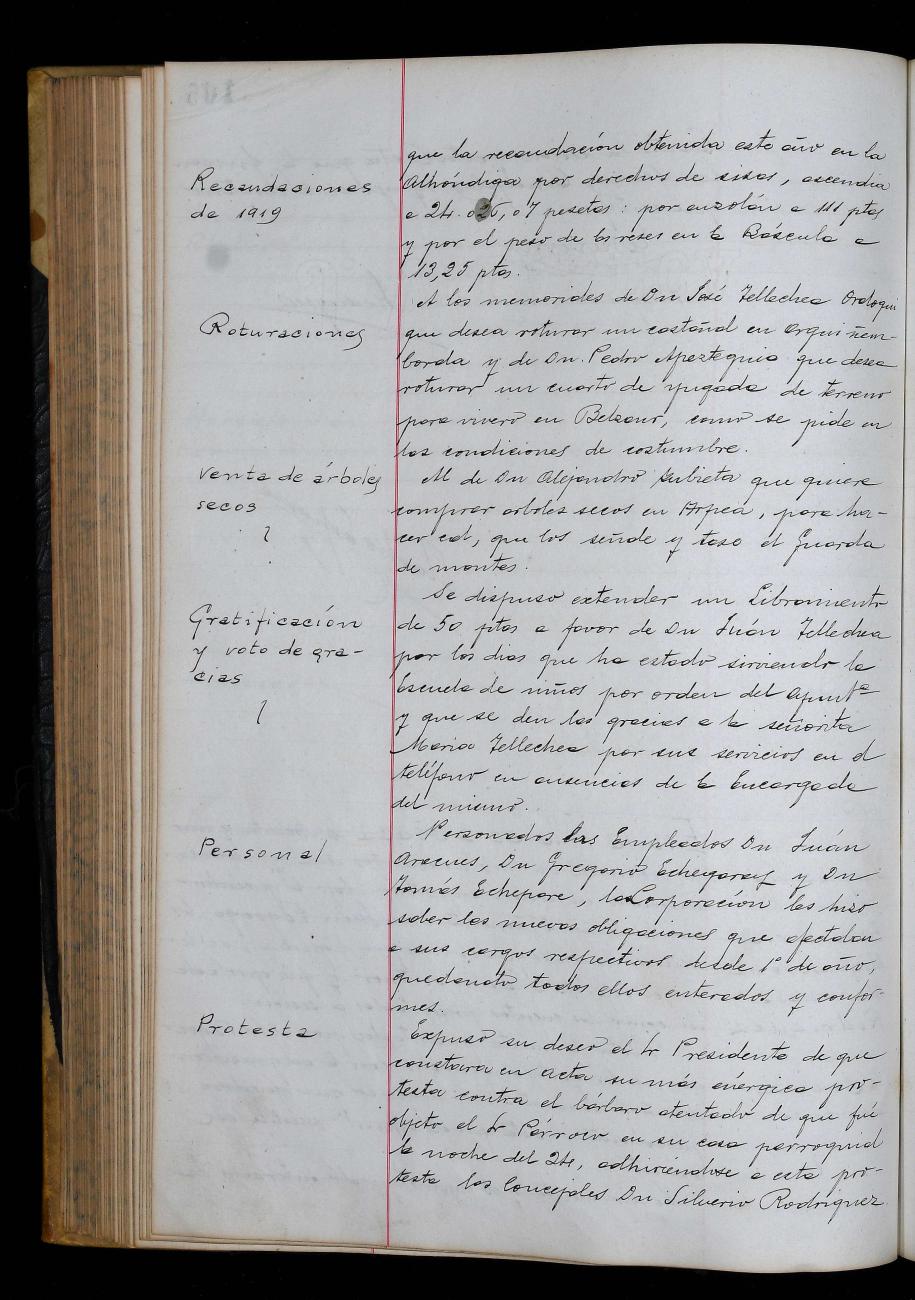 que la recaudación obtenida este año en la
Recaudaciones
de 1919
Alhóndiga por derechos de sisas, ascendia
a 24.026,07 pesetas: por anzolán a 111 ptas
y por el peso de las reses en la Báscula a
13,25 ptas.
Roturaciones
A los memoriales de Dn José Tellechea Ordoqui
que desea roturar un castañal en Arquiñem-
borda y de Dn. Pedro Apezteguia que desea
roturar un cuarto de yugada de terreno
para vivero en Belzaur, como se pide en
las condiciones de costumbre.
Venta de árboles
secos
Al de Dn Alejandro Zubieta que quiere
comprar arboles secos en Arpea, para ha-
cer cal, que los señale y tase el Guarda
de montes.
Gratificación
y voto de gra-
cias
Se dispuso extender un Libramiento
de 50 ptas a favor de Dn Juán Tellechea
por los dias que ha estado sirviendo la
Escuela de niños por orden del Ayuntº
y que se den las gracias a la señorita
Maria Tellechea por sus servicios en el
teléfono en ausencias de la Encargada
del mismo.
Personal
Personados los Empleados Dn Juán
Aracues, Dn Gregorio Echegaray y Dn
Tomás Echepare, la Corporación les hizo
saber las nuevas obligaciones que afectaban
a sus cargos respectivos desde 1º de año,
quedando todos ellos enterados y confor-
mes.
Protesta
Expuso su deseo el Sr Presidente de que
constara en acta su más enérgica pro-
testa contra el bárbaro atentado de que fué
objeto el Sr Párroco en su casa parroquial
la noche del 24, adhiriéndose a esta pro-
testa los Concejales Dn Silverio Rodriguez